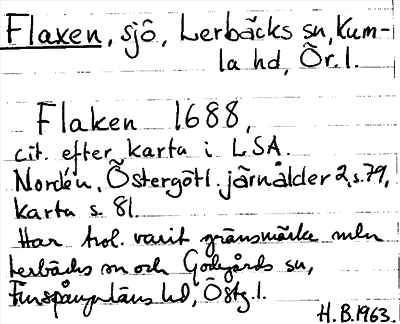 Flaxen, sjö, Lerbäcks sn, Kum-
la hd, Ör. l.
Flaken 1688,
cit. efter karta i LSA.
Nordén, Östergötl. järnålder 2, s. 79,
karta s. 81.
Har trol. varit gränsmärke mln
Lerbäcks sn och Godegårds sn,
Finspångaläns hd, Östg. l.
H. B. 1963.